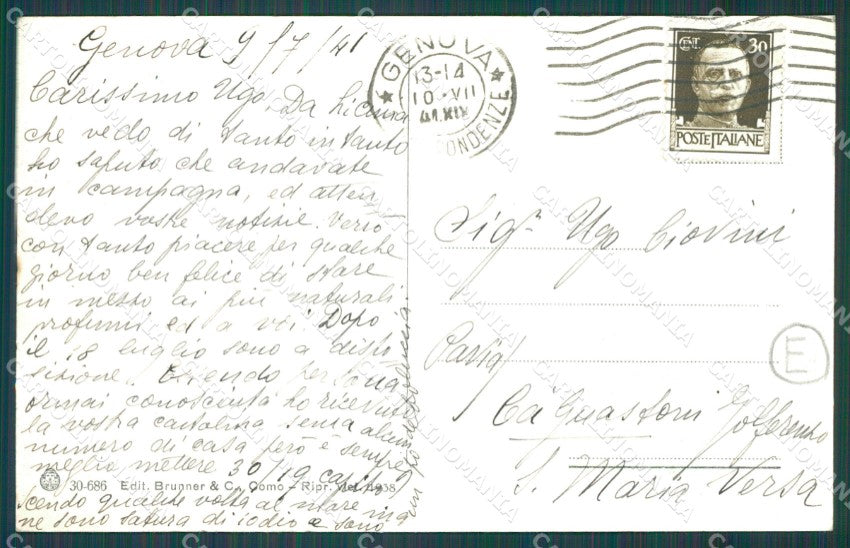 Genova 9/7/41
Carissimo Ugo, Da Licina
che vedo di tanto in tanto
ho saputo che andavate
in campagna, ed atten
devo vostre notizie. Verrò
con tanto piacere per qualche
giorno ben felice di stare
in mezzo ai più naturali
profumi ed a voi. Dopo
il 18 luglio sono a dispo
sizione. Essendo persona
ormai conosciuta ho ricevuto
la vostra cartolina senza alcun
numero di casa però è sempre
meglio mettere 30/19
scendo qualche volta al mare ma
ne sono satura di iodio e sono
un po'
30-686 Edit. Brunner & C., Como - Ripr. Viet. 4938
GENOVA
13-14
10·VII
41.XIX
ONDENZE
CENT. 30
POSTE ITALIANE
Sig.r Ugo Ciovini
Pavia
Ca Guastoni Golferenzo
S. Maria Versa
E
CARTOLINOMANIA